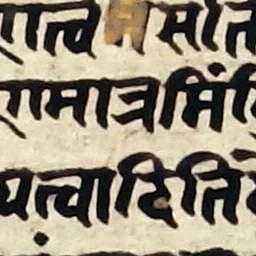 णत्व मसति
णमात्रमिं
यत्वादिति